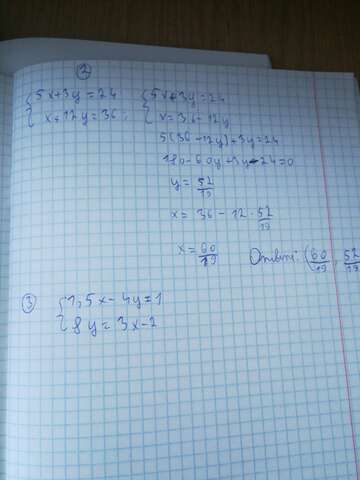 ②
{5x+3y=24 {5x+3y=24
{x+12y=36; {x=36-12y
5(36-12y)+3y=24
180-60y+3y-24=0
y=52/19
x= 36-12·52/19
x=60/19 Ответ: (60/19, 52/19
③ {1,5x-4y=1
{8y=3x-2